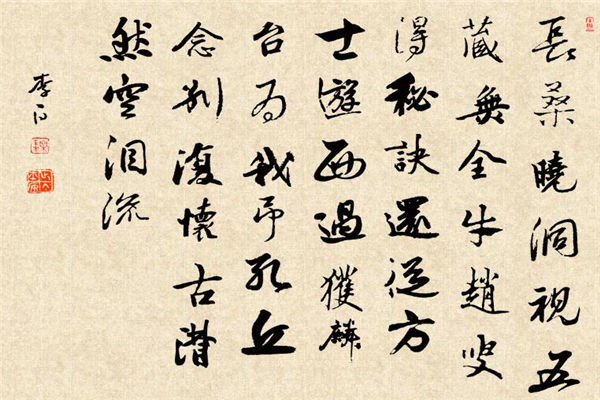 長桑曉洞視五
藏無全牛趙叟
得秘訣還從方
士遊西過獲麟
台為我吊孔丘
念別復懷古潸
然空泪流
李白